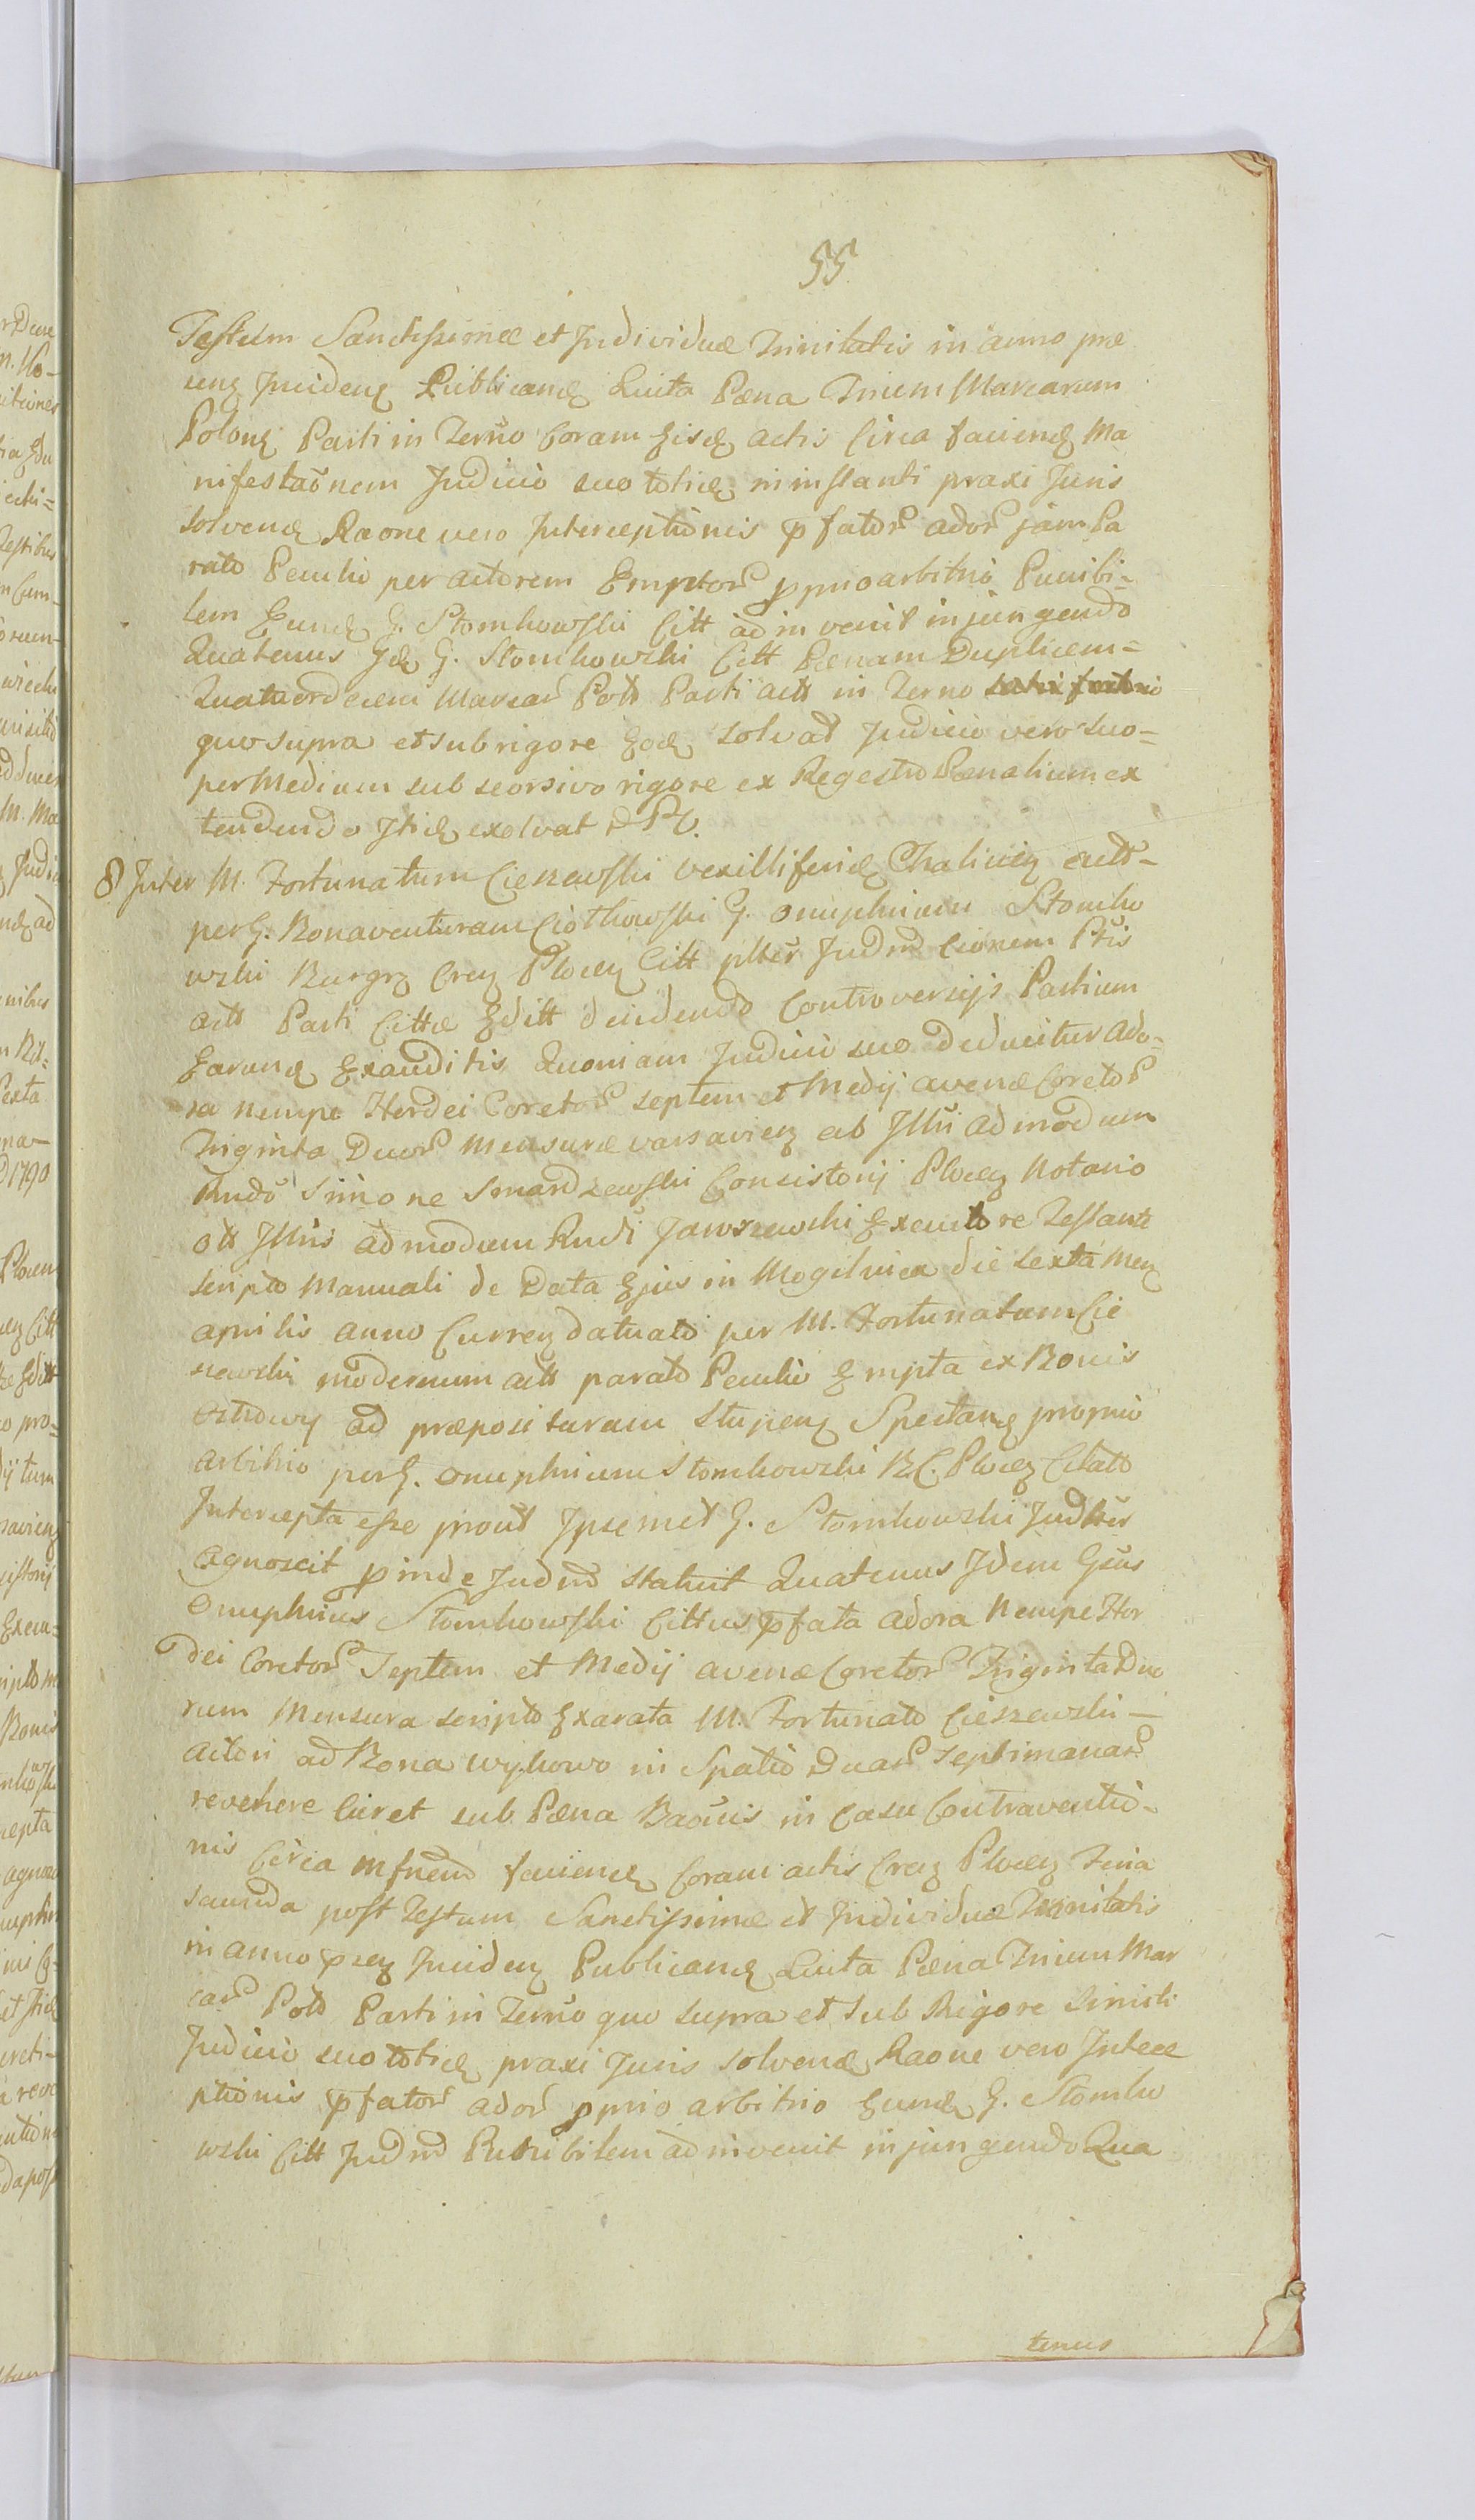 55
Festum Sanctissimæ et Individuæ Trinitatis in anno præ
senꝫ Incidenꝫ Publicandꝫ Luita Pæna Trium Marcarum
Polonꝫ Parti in Termo Coram Eisdꝫ actis Circa faciendꝫ Ma
nifestaõnem Judicio suo totidꝫ in instanti praxi Juris
solvendꝫ Raone vero Interceptionis p̃fator̃ ador̃ jam Pa
rato Peculio per actorem Emptor̃ pprio arbitrio Punibi-
lem Eundꝫ G. Stomkowski Citt ad in venit injungendo
Quatenus Idꝫ G. Stomkowski Citt Pænam Duplicem=
Quatuordecim Marcar̃ Pollo Parti actt in Termo
quo supra et sub rigore Eodꝫ solvat Judicio vero suo=
per Medium sub seorsivo rigore ex Regestro Pænalium ex
tendendo Itidꝫ exolvat
8 Inter M. Fortunatum Cieszewski Vexilliferidꝫ Chalicienꝫ actt-
per G. Bonaventuram Ciotkowski G. Onuphrium Stomko
wski Burgrꝫ Crenꝫ Plocenꝫ Citt Judm̃ Ptis
actt Parti Cittæ Editt decidendo Controversijs Partium
Earundꝫ Exauditis Quoniam Judicio suo deducitur Ado-
ra nempe Hordei Coretor̃ septem et Medij avenæ Coretor̃
Triginta Duor̃ Mensuræ varsavienꝫ ab Illri admodum
Rndo Simone Smardzewski Consistorij Plocenꝫ Notario
ott Illris admodum Rndi Jawszewski Executore Testantꝫ
scripto Manuali de Data Ejus in Mogilnica die sexta Menꝫ
aprilis anno Currenꝫ datuato per M. Fortunatum Cie
szewski modernum actt parato Peculio Empta ex Bonis
Ostrowy ad præposituram Stupenꝫ Spectandꝫ proprio
arbitrio per G. Onuphrium Stomkowski B. C. Plocenꝫ Citatto
Intercepta esse prout Ipsemet G. Stomkowski Judlter
agnoscit pinde Judm̃ statuit Quatenus Idem Gsus
Onuphrius Stomkowski Cittus p̃fata adora Nempe Hor
dei Coretor̃ Septem et Medij avenæ Coretor̃ Triginta Duo
rum Mensura scripto Exarata M. Fortunato Cieszewski-
actori ad Bona Wykowo in Spatio Duar̃ Septimanar̃
revehere Curet sub Pæna Baõnis in Casu Contraventio-
nis Circa faciendꝫ Coram actis Crenꝫ Plocenꝫ Feria
secunda post Festum Sanctissimæ et Individuæ Trinitatis
in anno p̃senꝫ Incidenꝫ Publicandꝫ Luita Pæna Trium Mar
car̃ Pollo Parti in Termo quo supra et sub Rigore Simili
Judicio suo totidꝫ praxi Juris solvendꝫ Raone vero Interce
ptionis p̃fator̃ ador̃ pprio arbitrio Eundꝫ G. Stomko
wski Citt Judm̃ Punibilem adinvenit injungendo Qua
tenus